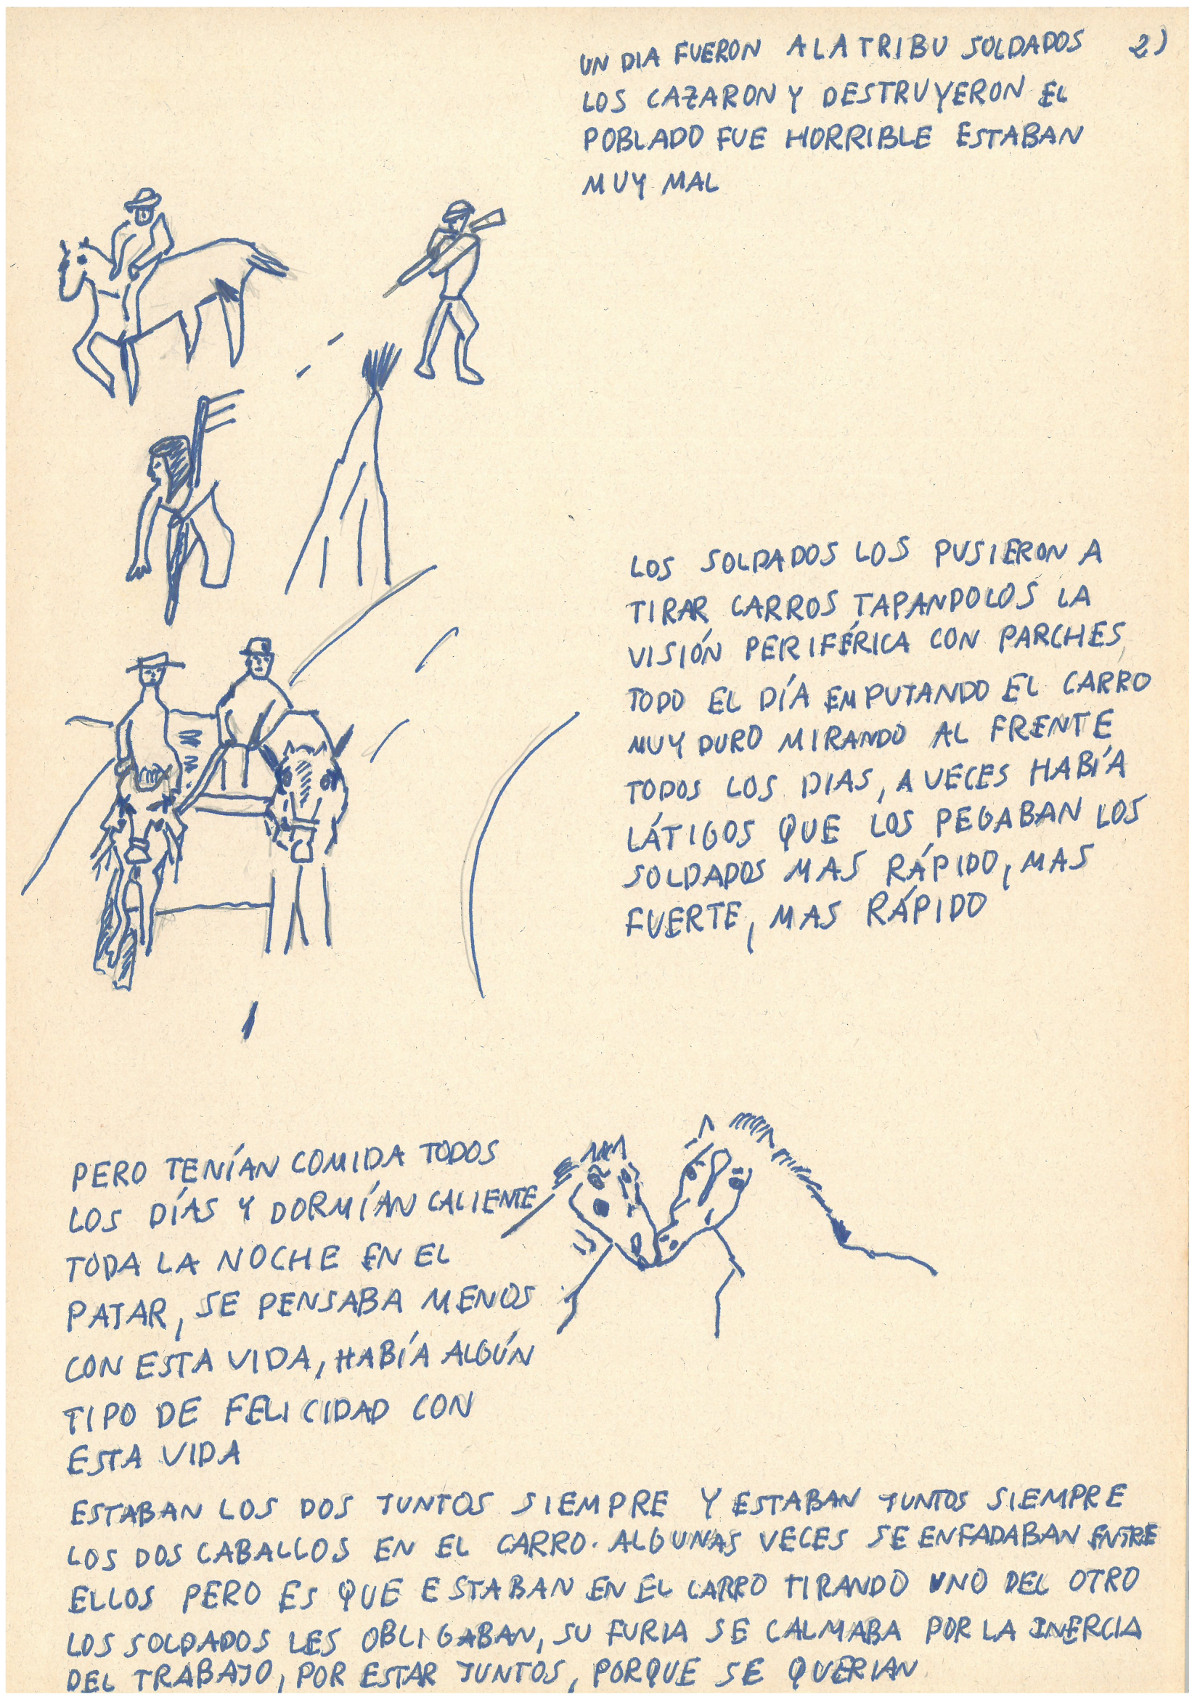 2)
UN DIA FUERON A LA TRIBU SOLDADOS
LOS CAZARON Y DESTRUYERON EL
POBLADO FUE HORRIBLE ESTABAN
MUY MAL
LOS SOLDADOS LOS PUSIERON A
TIRAR CARROS TAPANDOLOS LA
VISIÓN PERIFÉRICA CON PARCHES,
TODO EL DÍA EMPUTANDO EL CARRO
MUY DURO MIRANDO AL FRENTE
TODOS LOS DIAS, A VECES HABÍA
LÁTIGOS QUE LOS PEGABAN LOS
SOLDADOS MAS RÁPIDO, MAS
FUERTE, MAS RÁPIDO
PERO TENÍAN COMIDA TODOS
LOS DÍAS Y DORMÍAN CALIENTE
TODA LA NOCHE EN EL
PAJAR, SE PENSABA MENOS
CON ESTA VIDA, HABÍA ALGÚN
TIPO DE FELICIDAD CON
ESTA VIDA
ESTABAN LOS DOS JUNTOS SIEMPRE Y ESTABAN JUNTOS SIEMPRE
LOS DOS CABALLOS EN EL CARRO. ALGUNAS VECES SE ENFADABAN ENTRE
ELLOS PERO ES QUE ESTABAN EN EL CARRO TIRANDO UNO DEL OTRO
LOS SOLDADOS LES OBLIGABAN, SU FURIA SE CALMABA POR LA INERCIA
DEL TRABAJO, POR ESTAR JUNTOS, PORQUE SE QUERIAN